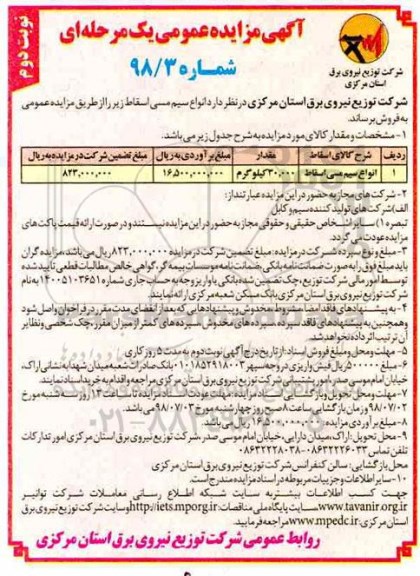 نوبت دوم
آگهی مزایده عمومی یک مرحله‌ای
شماره ۹۸/۳
شرکت توزیع نیروی برق
استان مرکزی
شرکت توزیع نیروی برق استان مرکزی در نظر دارد انواع سیم مسی اسقاط زیر را از طریق مزایده عمومی
به فروش برساند.
۱- مشخصات و مقدار کالای مورد مزایده به شرح جدول زیر می باشد.
ردیف شرح کالای اسقاط مقدار مبلغ برآوردی به ریال مبلغ تضمین شرکت در مزایده به ریال
۱ انواع سیم مسی اسقاط ۳۰،۰۰۰ کیلوگرم ۱۶،۵۰۰،۰۰۰،۰۰۰ ۸۲۳،۰۰۰،۰۰۰
۲- شرکت های مجاز به حضور در این مزایده عبارتند از:
الف) شرکت های تولید کننده سیم و کابل
تبصره ۱) سایر اشخاص حقیقی و حقوقی مجاز به حضور در این مزایده نیستند و در صورت ارائه قیمت پاکت های
مزایده عودت می گردد.
۳- مبلغ و نوع سپرده شرکت در مزایده: مبلغ تضمین شرکت در مزایده ۸۲۳،۰۰۰،۰۰۰ ریال می باشد، مزایده گران
باید مبلغ فوق را به صورت ضمانت نامه بانکی، ضمانت نامه موسسات بیمه گر، گواهی خالص مطالبات قطعی تایید شده
توسط امور مالی شرکت توزیع، چک تضمین شده بانکی یا واریز وجه به حساب جاری شماره ۱۴۰۰۵۱۰۳۶۵۱ به نام
شرکت توزیع نیروی برق استان مرکزی بانک مسکن شعبه مرکزی ارائه نمایند
۴- به پیشنهادهای فاقد امضاء، مشروط، مخدوش و پیشنهادهایی که بعد از انقضاء مدت مقرر در فراخوان واصل شود
وهمچنین به پیشنهادهای فاقد سپرده، سپرده های مخدوش، سپرده های کمتر از میزان مقرر، چک شخصی و نظایر
آن ترتیب اثر داده نخواهد شد.
۵- مهلت و محل ومبلغ فروش اسناد: از تاریخ درج آگهی نوبت دوم به مدت ۵ روز کاری
خیابان امام موسی صدر، امور تدارکات و انبار شرکت توزیع نیروی برق استان مرکزی مراجعه و اقدام به خرید اسناد نمایند.
۹- محل تحویل: اراک، میدان دارایی، خیابان امام موسی صدر، شرکت توزیع نیروی برق استان مرکزی امور تدارکات
محل بازگشایی: سالن کنفرانس شرکت توزیع نیروی برق استان مرکزی
۱۰- سایر اطلاعات و جزییات مربوطه در اسناد مزایده مندرج است.
جهت کسب اطلاعات بیشتر به سایت شبکه اطلاع رسانی معاملات شرکت توانیر
www.tavanir.org.ir، سایت پایگاه ملی مناقصات http://iets.mporg.ir و سایت شرکت توزیع نیروی برق
استان مرکزی www.mpedc.ir مراجعه فرمایید.
روابط عمومی شرکت توزیع نیروی برق استان مرکزی